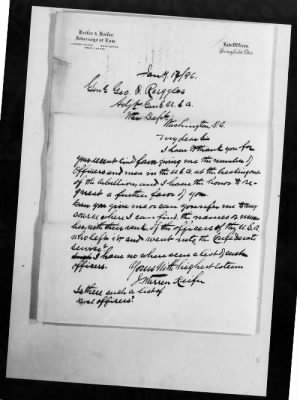 Keifer & Keifer,
Attorneys at Law
Law Offices,
Springfield, Ohio
Jany 17/96.
Genl Geo. D. Ruggles
Adjt Genl U.S.A.
War Dept
Washington D.C.
My dear Sir
I have to thank you for
your recent kind favor giving me the number of
Officers and men in the U.S.A. at the breaking out
of the rebellion, and I have the honor to re-
quest a further favor of you
Can you give me or can you refer me to any
source where I can find, the names or num-
ber, with their rank, of the officers of the U.S.A.
who left it and went into the Confederate
service?
I have no where seen a list of such
officers.
Yours with highest esteem
J. Warren Keifer
Is there such a list of
officers?